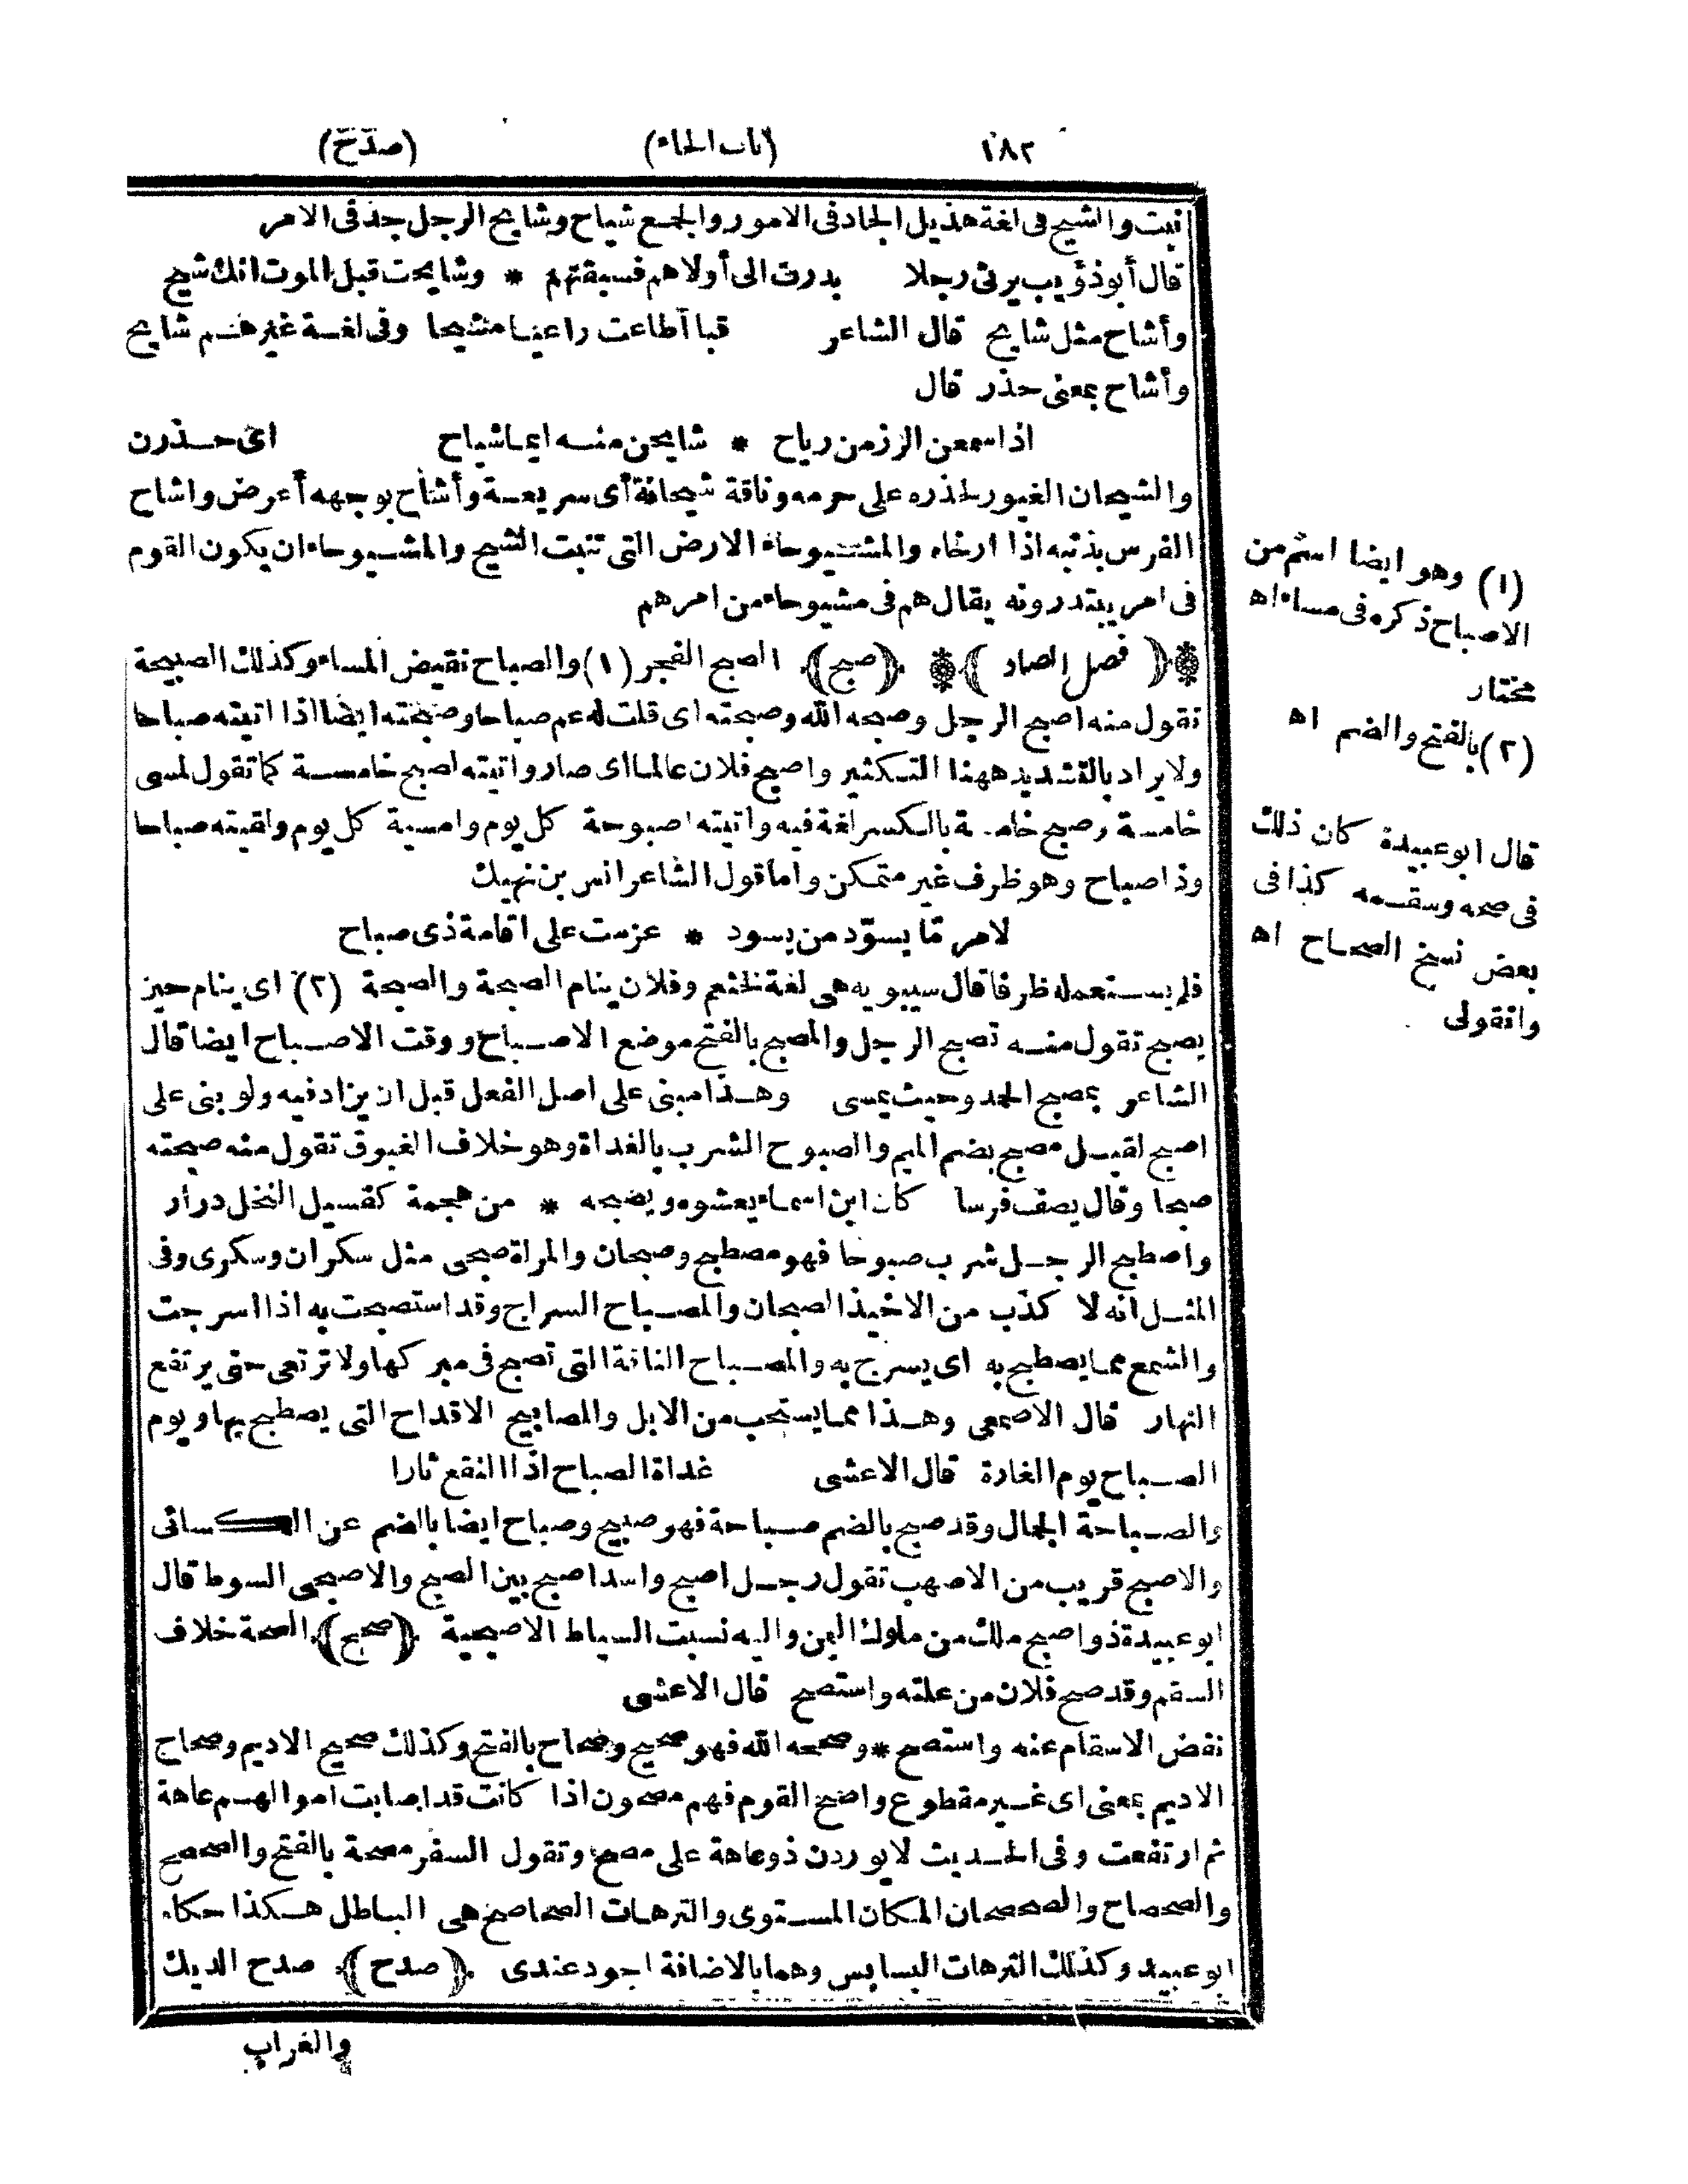 ١٨٢ (باب الحاء) (صدح)
نبت والشيح فى لغة هذيل الجاد فى الامور والجمع شياح وشايح الرجل جد فى الامر
قال أبو ذؤيب يرثى رجلا بدرت الى أولاهم فسبقتهم * وشايحت قبل الموت انك شيح
وأشاح مثل شايح قال الشاعر قبا أطاعت راعيا مشيحا وفى لغة غيرهم شايح
وأشاح بمعنى حذر قال
اذا سمعن الرز من رباح * شايحن منه ايما شياح اى حذرن
والشيحان الغيور لحذره على حرمه وناقة شيحانة أى سريعة وأشاح بوجهه أعرض واشاح
الفرس بذنبه اذا ارخاه والمشيوحاء الارض التى تنبت الشيح والمشيوحاء ان يكون القوم
فى امر يبتدرونه يقال هم فى مشيوحاء من امرهم
﴿ فصل الصاد ﴾ ﴿صبح﴾ الصبح الفجر (١) والصباح نقيض المساء وكذلك الصبيحة
تقول منه اصبح الرجل وصبحه الله وصبحته اى قلت له عم صباحا وصبحته ايضا اذا اتيته صباحا
ولا يراد بالتشديد ههنا التكثير واصبح فلان عالما اى صار واتيته اصبح خامسة كما تقول لمسى
خامسة وصبح خامسة بالكسر لغة فيه واتيته اصبوحة كل يوم وامسية كل يوم ولقيته صباحا
وذا صباح وهو ظرف غير متمكن واما قول الشاعر انس بن نهيك
لامر ما يسود من يسود * عزمت على اقامة ذى صباح
فلم يستعمله ظرفا قال سيبويه هى لغة لخثعم وفلان ينام الصبحة والصبحة (٢) اى ينام حين
يصبح تقول منه تصبح الرجل والمصبح بالفتح موضع الاصباح ووقت الاصباح ايضا قال
الشاعر بمصبح الحمد وحيث يمسى وهذا مبنى على اصل الفعل قبل ان يزاد فيه ولو بنى على
اصبح لقيل مصبح بضم الميم والصبوح الشرب بالغداة وهو خلاف الغبوق تقول منه صبحته
صبحا وقال يصف فرسا كان ابن اسماء يعشوه ويصبحه * من هجمة كفسيل النخل درار
واصطبح الرجل شرب صبوحا فهو مصطبح وصبحان والمراة صبحى مثل سكران وسكرى وفى
المثل انه لا كذب من الاخيذ الصبحان والمصباح السراج وقد استصبحت به اذا اسرجت
والشمع مما يصطبح به اى يسرج به والمصباح الناقة التى تصبح فى مبركها ولا ترتعى حتى يرتفع
النهار قال الاصمعى وهذا مما يستحب من الابل والمصابيح الاقداح التى يصطبح بها ويوم
الصباح يوم الغارة قال الاعشى غداة الصباح اذا النقع ثارا
والصباحة الجمال وقد صبح بالضم صباحة فهو صبيح وصباح ايضا بالضم عن الكسائى
والاصبح قريب من الاصهب تقول رجل اصبح واسد اصبح بين الصبح والاصبحى السوط قال
ابو عبيدة ذو اصبح ملك من ملوك اليمن واليه نسبت السياط الاصبحية ﴿صحح﴾ الصحة خلاف
السقم وقد صح فلان من علته واستصح قال الاعشى
نفض الاسقام عنه واستصح * وصححه الله فهو صحيح وصحاح بالفتح وكذلك صحيح الاديم وصحاح
الاديم بمعنى اى غير مقطوع واصح القوم فهم مصحون اذا كانت قد اصابت اموالهم عاهة
ثم ارتفعت وفى الحديث لا يوردن ذو عاهة على مصح وتقول السفر مصحة بالفتح والصحصح
والصحصاح والصحصحان المكان المستوى والترهات الصحاصح هى الباطل هكذا حكاه
ابو عبيد وكذلك الترهات البسابس وهما بالاضافة اجود عندى ﴿صدح﴾ صدح الديك
والغراب
(١) وهو ايضا اسم من
الاصباح ذكره فى مساء اه
مختار
(٢) بالفتح والضم اه
قال ابو عبيدة كان ذلك
فى صحه وسقمه كذا فى
بعض نسخ الصحاح اه
وانقولى